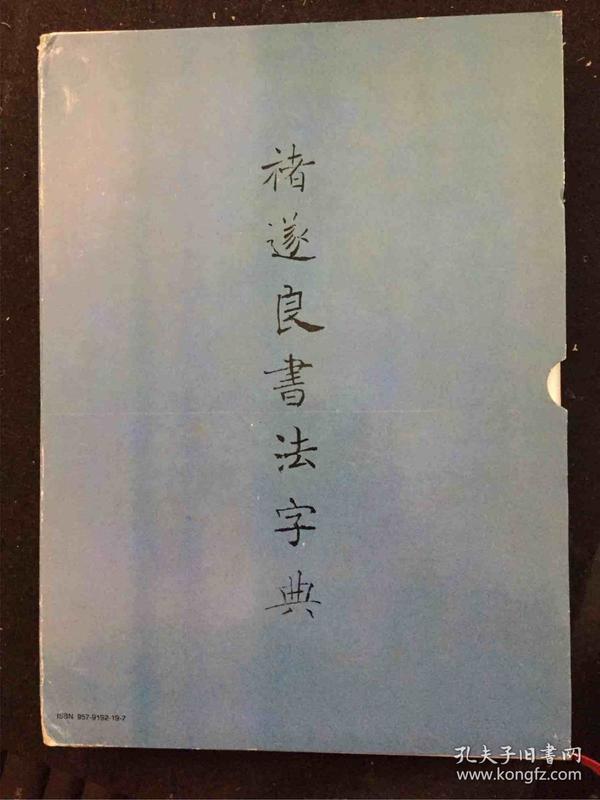 褚遂良書法字典
ISBN 957-9192-19-7
孔夫子旧書网
www.kongfz.com